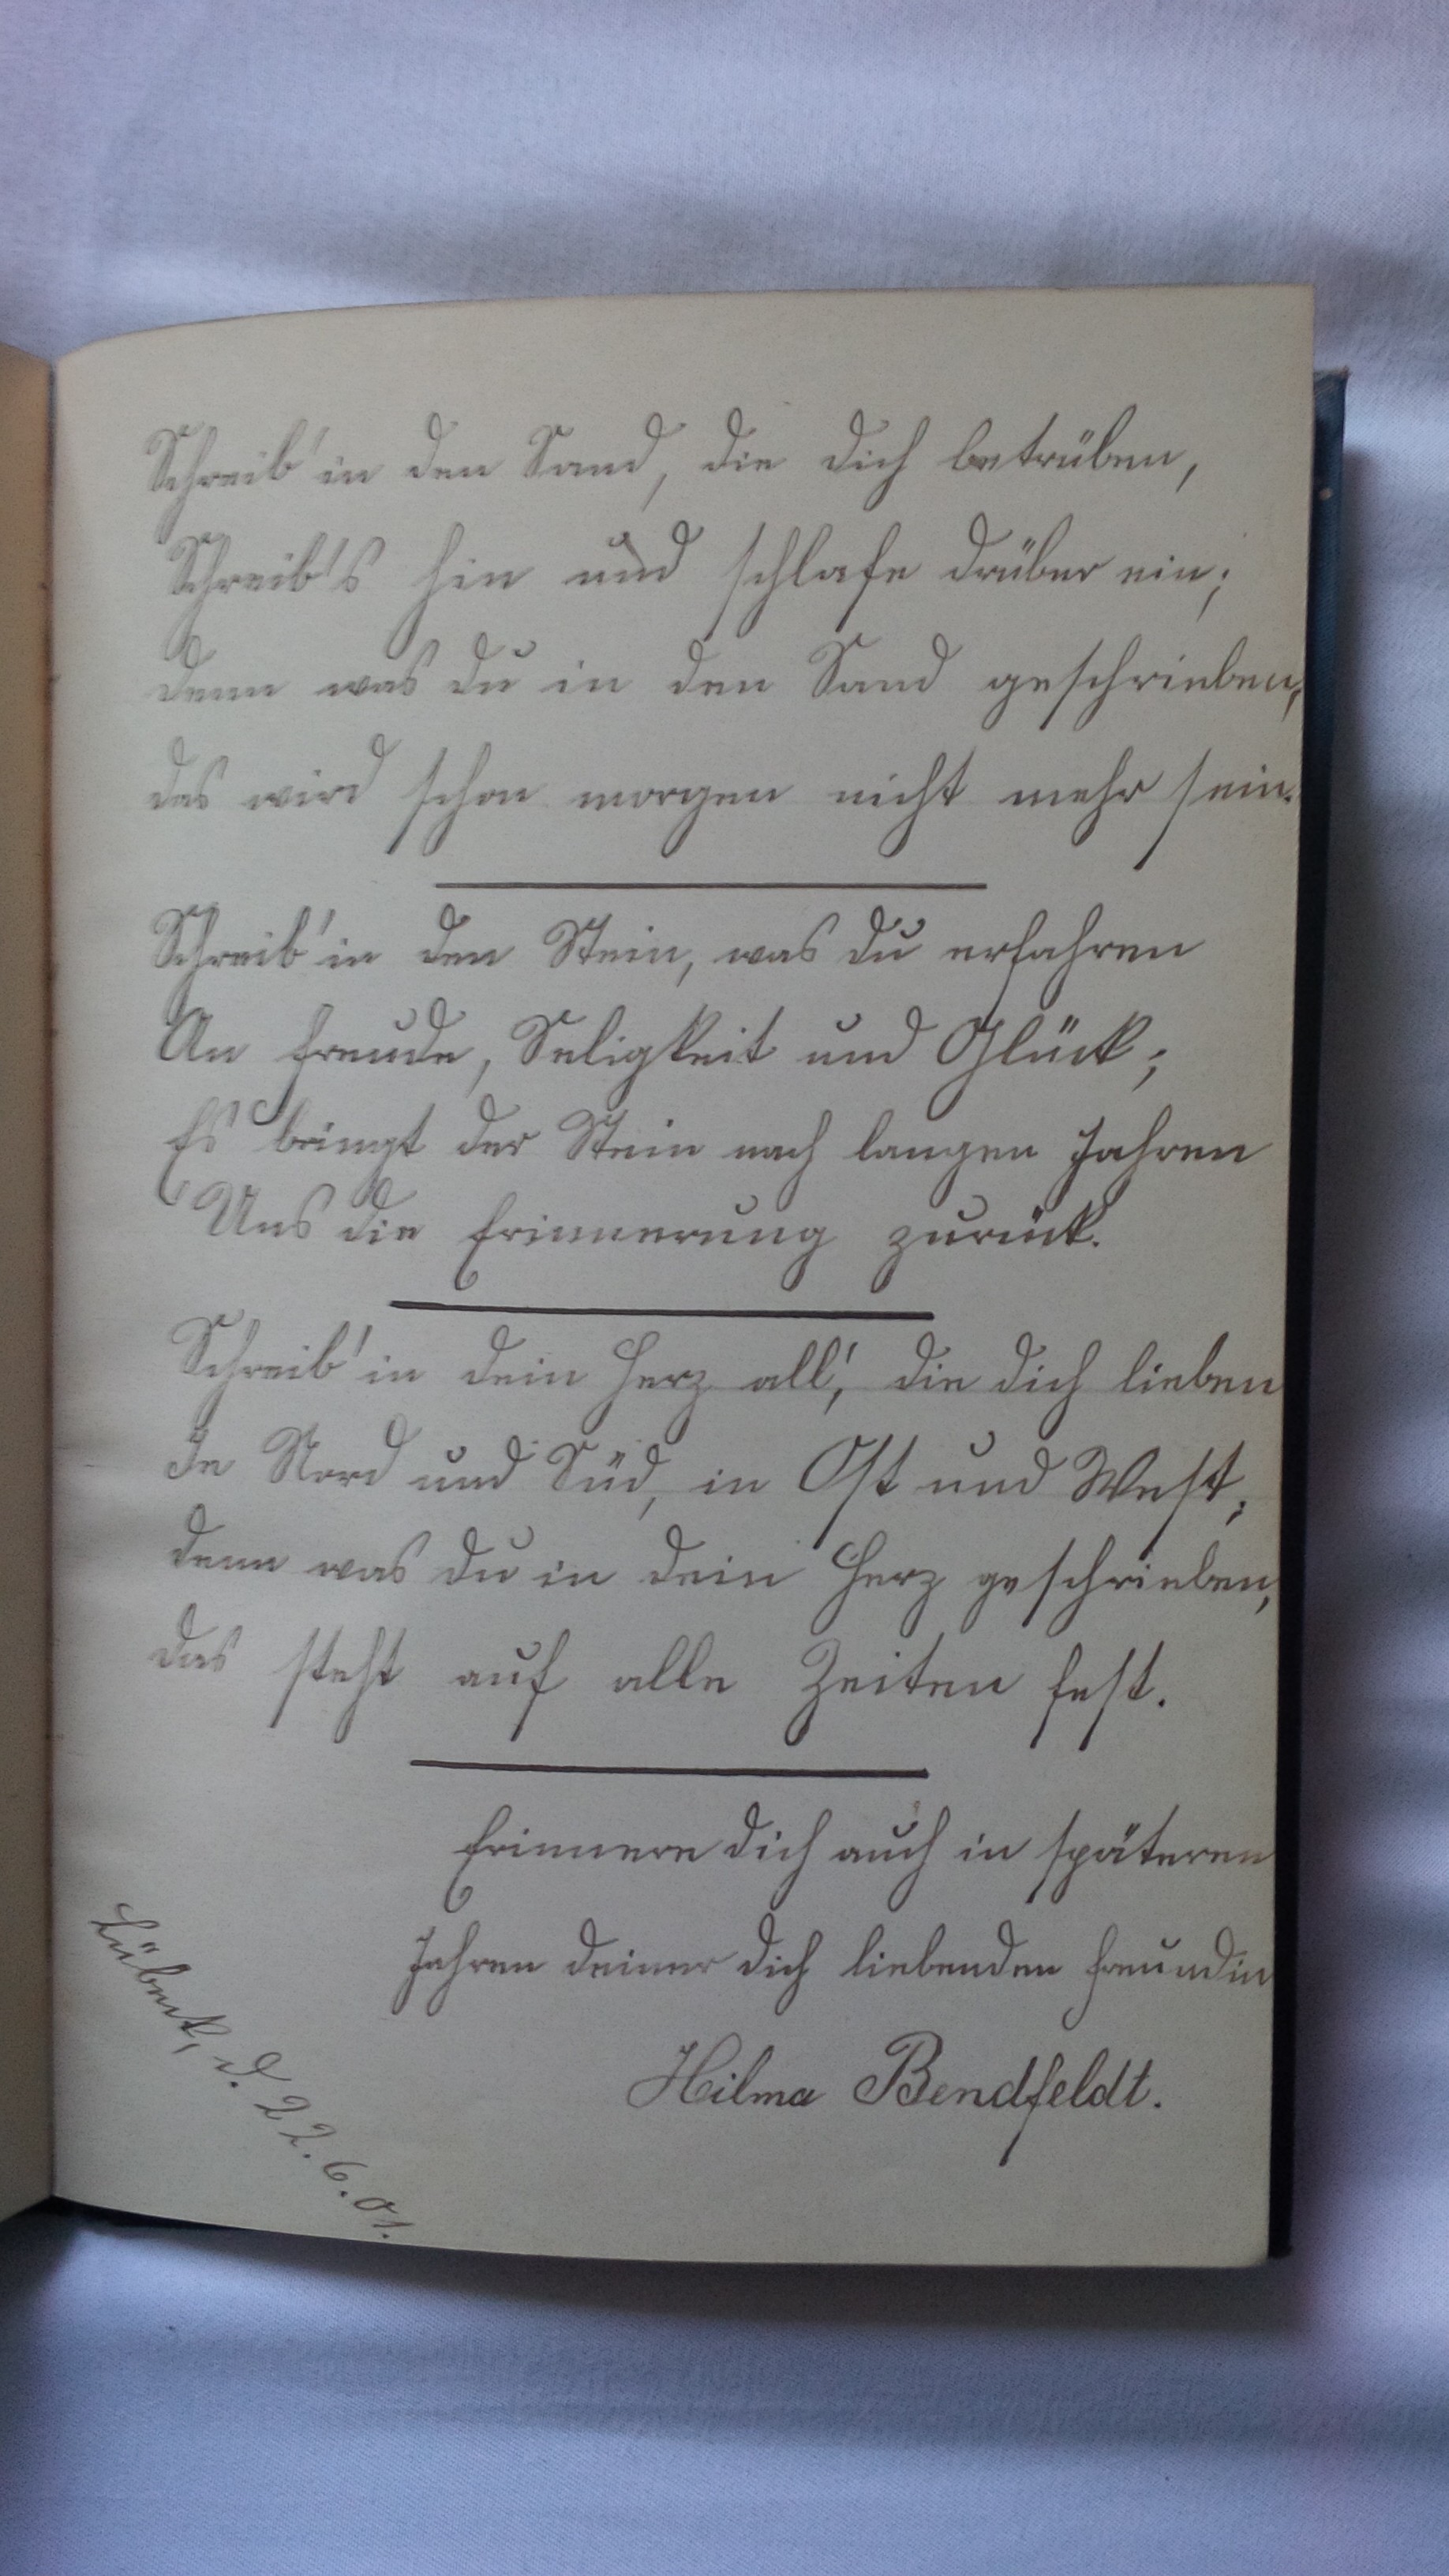 Schreib' in den Sand, die dich betrüben,
Schreib's hin und schlafe drüber ein;
denn was du in den Sand geschrieben,
das wird schon morgen nicht mehr sein.
Schreib' in den Stein, was du erfahren
An Freude, Seligkeit und Glück;
Es bringt der Stein nach langen Jahren
Uns die Erinnerung zurück.
Schreib' in dein Herz all', die dich lieben
In Nord und Süd, in Ost und West;
denn was du in dein Herz geschrieben,
das steht auf alle Zeiten fest.
Erinnere dich auch in späteren
Jahren deiner dich liebenden Freundin
Hilma Bendfeldt.
Lübeck, d. 22.6.01.